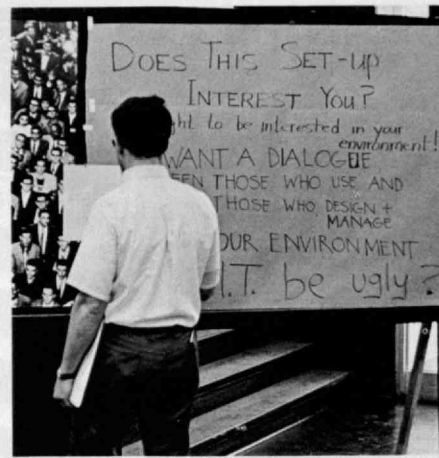 DOES THIS SET-UP
INTEREST YOU?
to be interested in your
environment!
WANT A DIALOGUE
THOSE WHO USE AND
THOSE WHO DESIGN +
MANAGE
ENVIRONMENT
be ugly?